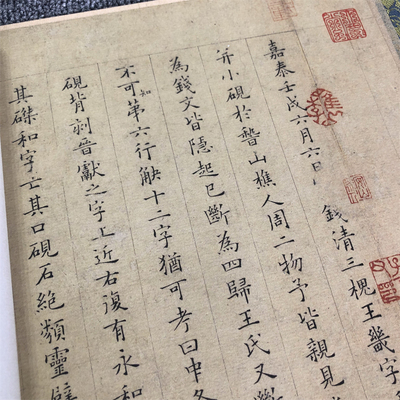 嘉泰壬戌六月六日錢清三槐王畿字
并小硯於稽山樵人周二物予皆親見
為錢文皆隱起已斷為四歸王氏又斷
不可知第六行缺十二字猶可考曰中冬
硯背刻晉獻之字上近右復有永和
其磔和字亡其口硯石絕類靈璧